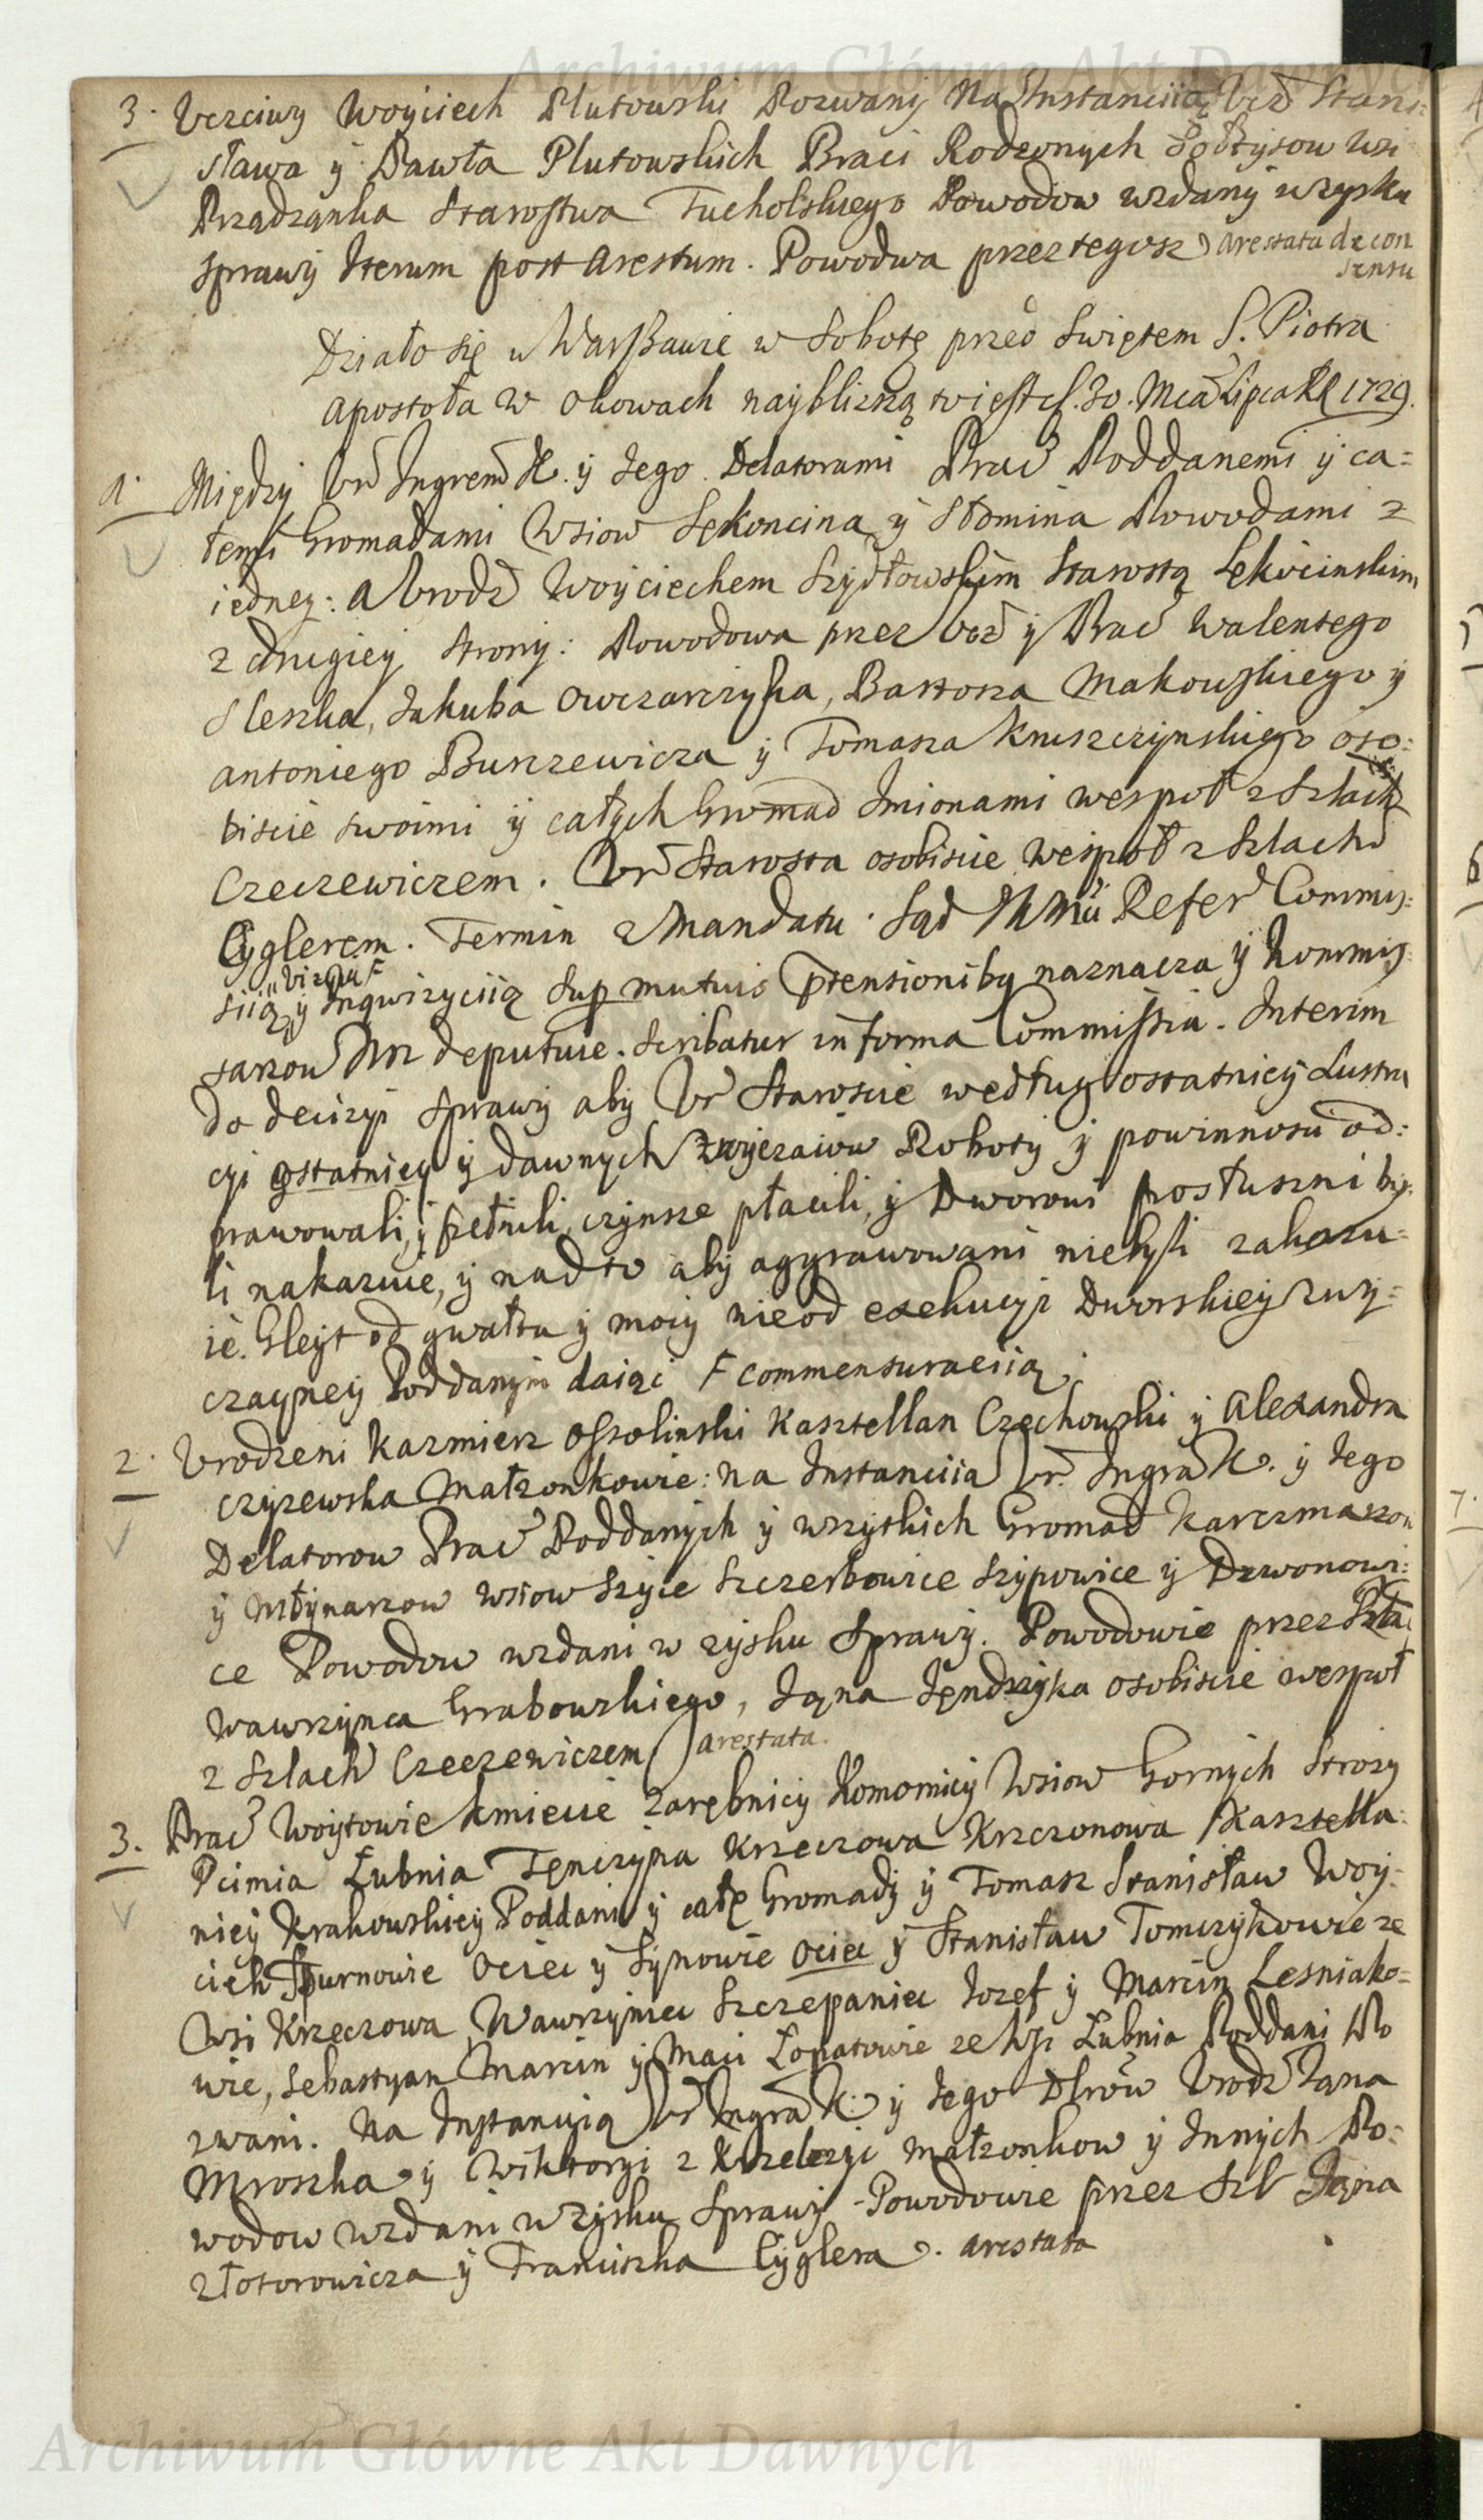 Archiwum Główne Akt Dawnych
3. Vczciwy Woyciech Plutowski Pozwany Na Instanciią Vcz Stani:
sława y Pawła Plutowskich Braci Rodzonych Sołtysow wsi
Prądząnka Starostwa Tucholskiego Powodow wzdany w zysku
sprawy Iterum post Arestum. Powodwa przez tegosz) arestata de con
sensu
Działo się w Warszawie w Sobotę przed Swiętem S. Piotra
Apostoła w Okowach nayblizszą to iest d. 30. Mca Lipca R 1729.
1. Między Vr Ingrem K. y Jego Delatorami Prac Poddanemi y ca=
łemi Gromadami Wsiow Sękoncina y Słomina Powodami z
iedney: a Vrodz Woyciechem Szydłowskim Starostą Sękocinskim
z drugiey strony: Powodowa przez Vcz y Prac Walentego
Sleszka, Jakuba Owczarczyka, Bartosza Makowskiego y
Antoniego Burzewicza y Tomasza Kruszczynskiego oso:
biscie swoimi y całych Gromad Imionami wespoł z Szlach
Czeczewiczem. Vr Starosta osobiscie wespoł z Szlach
Cyglerem. Termin z Mandatu. Sąd Refer Commis:
siią y Inqwizyciią sup mutuis ptensionibq naznacza y Kommis
sarzow deputuie. Scribatur in forma Commissia. Interim
do decizyi sprawy aby Vr Staroscie według ostatniey Lustra
cyi ostatniey y dawnych zwyczaiow Roboty y powinnosci od:
prawowali, y pełnili, czynsze płacili, y Dworowi posłuszni by:
li nakazuie, y nadto aby aggrawowani niebyli zakazu=
ie. Gleyt od gwałtu y mocy nie od exekucyi Dworskiey zwy=
czayney Poddanym daiąc F commensuraciią
2. Vrodzeni Kazmierz Ossolinski Kasztellan Czechowski y Alexandra
Czyzewska Małzonkowie: na Instanciia Vr. Ingra K. y Jego
Delatorow Prac Poddanych y wszytkich Gromad Karczmarzow
y Młynarzow wsiow Szyce Szczerbowice Szypowice y Dzwonowi:
ce Powodow wzdani w zysku Sprawy. Powodowie przez Szla
Wawrzynca Grabowskiego, Jąna Jęndrzyka osobiscie wespoł
z Szlach Czeczewiczem) arestata.
3. Prac Woytowie Kmiecie Zarębnicy Komornicy Wsiow Gornych Strozy
Pcimia Lubnia Tęnczyna Krzeczowa Krzczonowa Kasztella:
niey Krakowskiey Poddani y całe Gromady y Tomasz Stanisław Woy:
ciech Spurnowie Ociec y Synowie Ociec y Stanisław Tomczykowie ze
Wsi Krzeczowa Wawrzyniec Szczepaniec Jozef y Marcin Lesniako=
wie, Sebastyan Marcin y Maci Łopatowie ze Wsi Lubnia Poddani Po
zwani. Na Instancyią Vr Ingra K. y Jego Dlrów Vrodz Jąna
Mroszka y Wiktoryi z małzonkow y Innych Po:
wodow wzdani w zysku Sprawy - Powodowie przez Szl Jąna
Złotorowicza y Franciszka Cyglera. arestata
Archiwum Główne Akt Dawnych